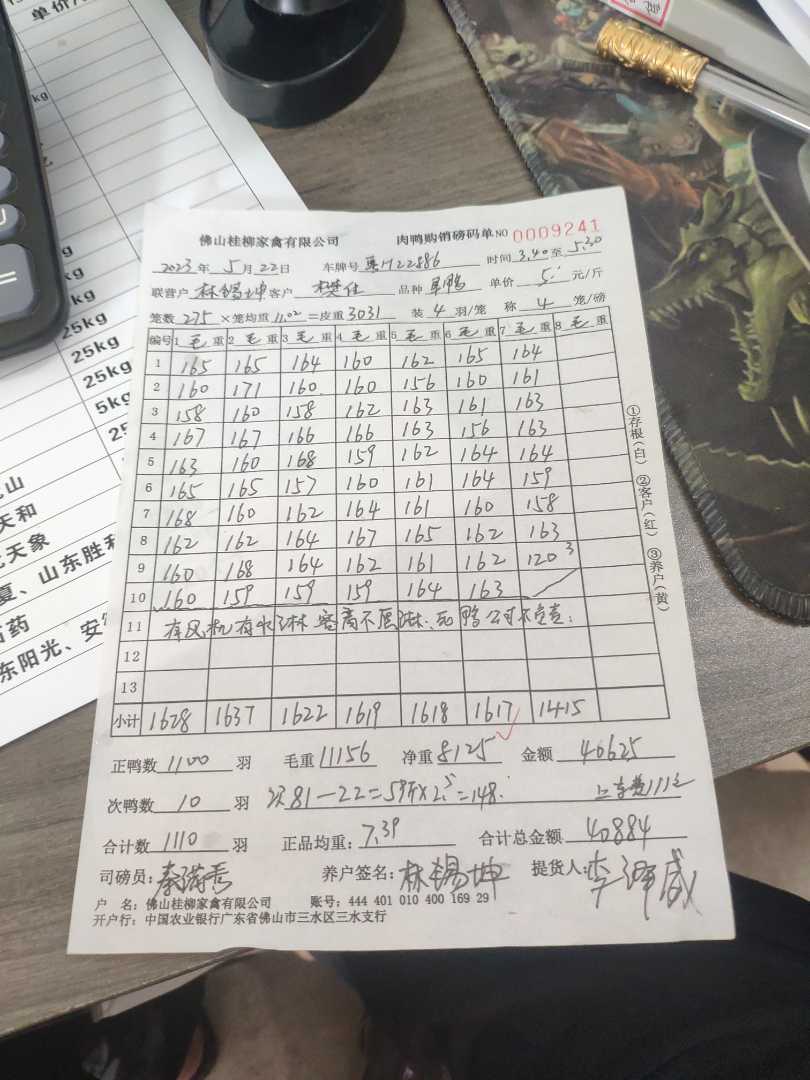 单价
kg
kg
kg
kg
25kg
25kg
5kg
天和
天象
夏、山东胜利
药
东阳光、安
佛山桂柳家禽有限公司 肉鸭购销磅码单 NO 0009241
2023年 5月22日 车牌号 粤M22886 时间 3.40 至 5.30
联营户 林锡坤 客户 樊仕 品种 单价 元/斤
笼数 275 ×笼均重 11.02 =皮重 3031 装 4 羽/笼 称 4 笼/磅
编号 1 毛 重 2 毛 重 3 毛 重 4 毛 重 5 毛 重 6 毛 重 7 毛 重 8 毛 重
1 165 165 164 160 162 165 164
2 160 171 160 160 156 160 161
3 158 160 158 162 163 161 163
4 167 167 166 166 163 156 163
5 163 160 168 159 162 164 164
6 165 165 157 160 161 164 159
7 168 160 162 164 161 160 158
8 162 162 164 167 165 162 163
9 160 168 164 162 161 162 120 3
10 160 159 159 159 164 163
11 有风机有水淋
12
13
小计 1628 1637 1622 1619 1618 1617 1415
①存根(白) ②客户(红) ③养户(黄)
正鸭数 1100 羽 毛重 11156 净重 8125 金额 40625
次鸭数 10 羽 次81-22=59斤×2.5=148
合计数 1110 羽 正品均重: 7.39 合计总金额 40884
司磅员: 养户签名: 林锡坤 提货人:
户 名: 佛山桂柳家禽有限公司 账号: 444 401 010 400 169 29
开户行: 中国农业银行广东省佛山市三水区三水支行